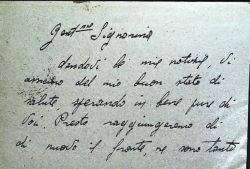 Gent.ma Signorina
dandovi le mie notizie, Vi
del mio buon stato di
salute, sperando in bene pure di
Voi. Presto raggiungeremo di
di nuovo il fronte, ne sono tanto